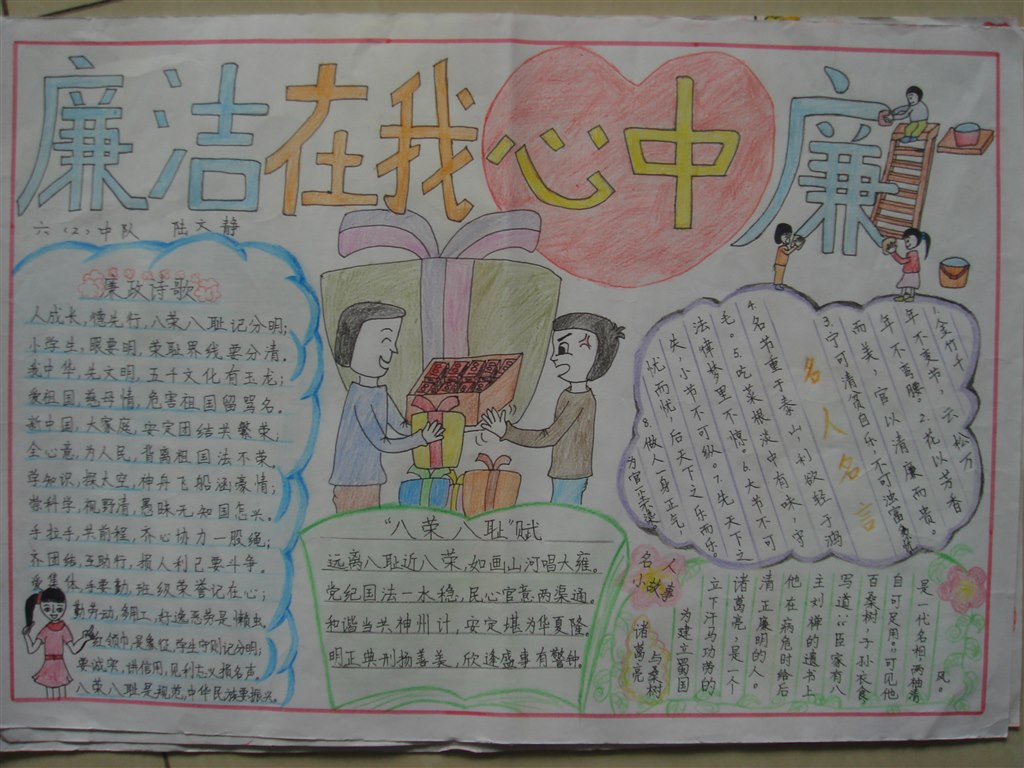 廉洁在我心中
廉
六（2）中队 陆文静
廉政诗歌
人成长，德先行，八荣八耻记分明；
小学生，眼要明，荣耻界线要分清。
我中华，先文明，五千文化有玉龙；
爱祖国，慈母情，危害祖国留骂名。
新中国，大家庭，安定团结共繁荣；
全心意，为人民，背离祖国法不荣。
学知识，探太空，神舟飞船涵豪情；
学科学，视野清，愚昧无知国怎兴。
手拉手，共前程，齐心协力一股绳；
齐团结，互助行，损人利己要斗争。
爱集体，手要勤，班级荣誉记在心；
勤劳动，好逸恶劳是懒虫
红领巾是象征，学生守则记分明；
要诚实，讲信用，见利忘义报名声。
八荣八耻是规范，中华民族要振兴。
“八荣八耻”赋
远离八耻近八荣，如画山河唱大雍。
党纪国法一水稳，民心官意两渠通。
和谐当共神州计，安定堪为华夏隆。
明正典刑扬善美，欣逢盛事有警钟。
名人名言
金竹千
年不变节，云松万
年不弯腰。2.花以芳香
而美，官以清廉而贵。
3.宁可清贫自乐，不可浊富
4.名节重于泰山，利欲轻于鸿
毛。5.吃菜根淡中有味，守
法律梦里不惊。6.大节不可
失，小节不可纵。7.先天下之
忧而忧，后天下之乐而乐。
8.做人一身正气，
为官
名人
小故事
诸葛亮
与桑树
为建立蜀国
立下汗马功劳的
诸葛亮，是一个
清正廉明的人。
他在病危时给后
主刘禅的遗书上
写道：“臣家有八
百桑树，子孙衣食
自可足用。”可见他
是一代名相两袖清
风。